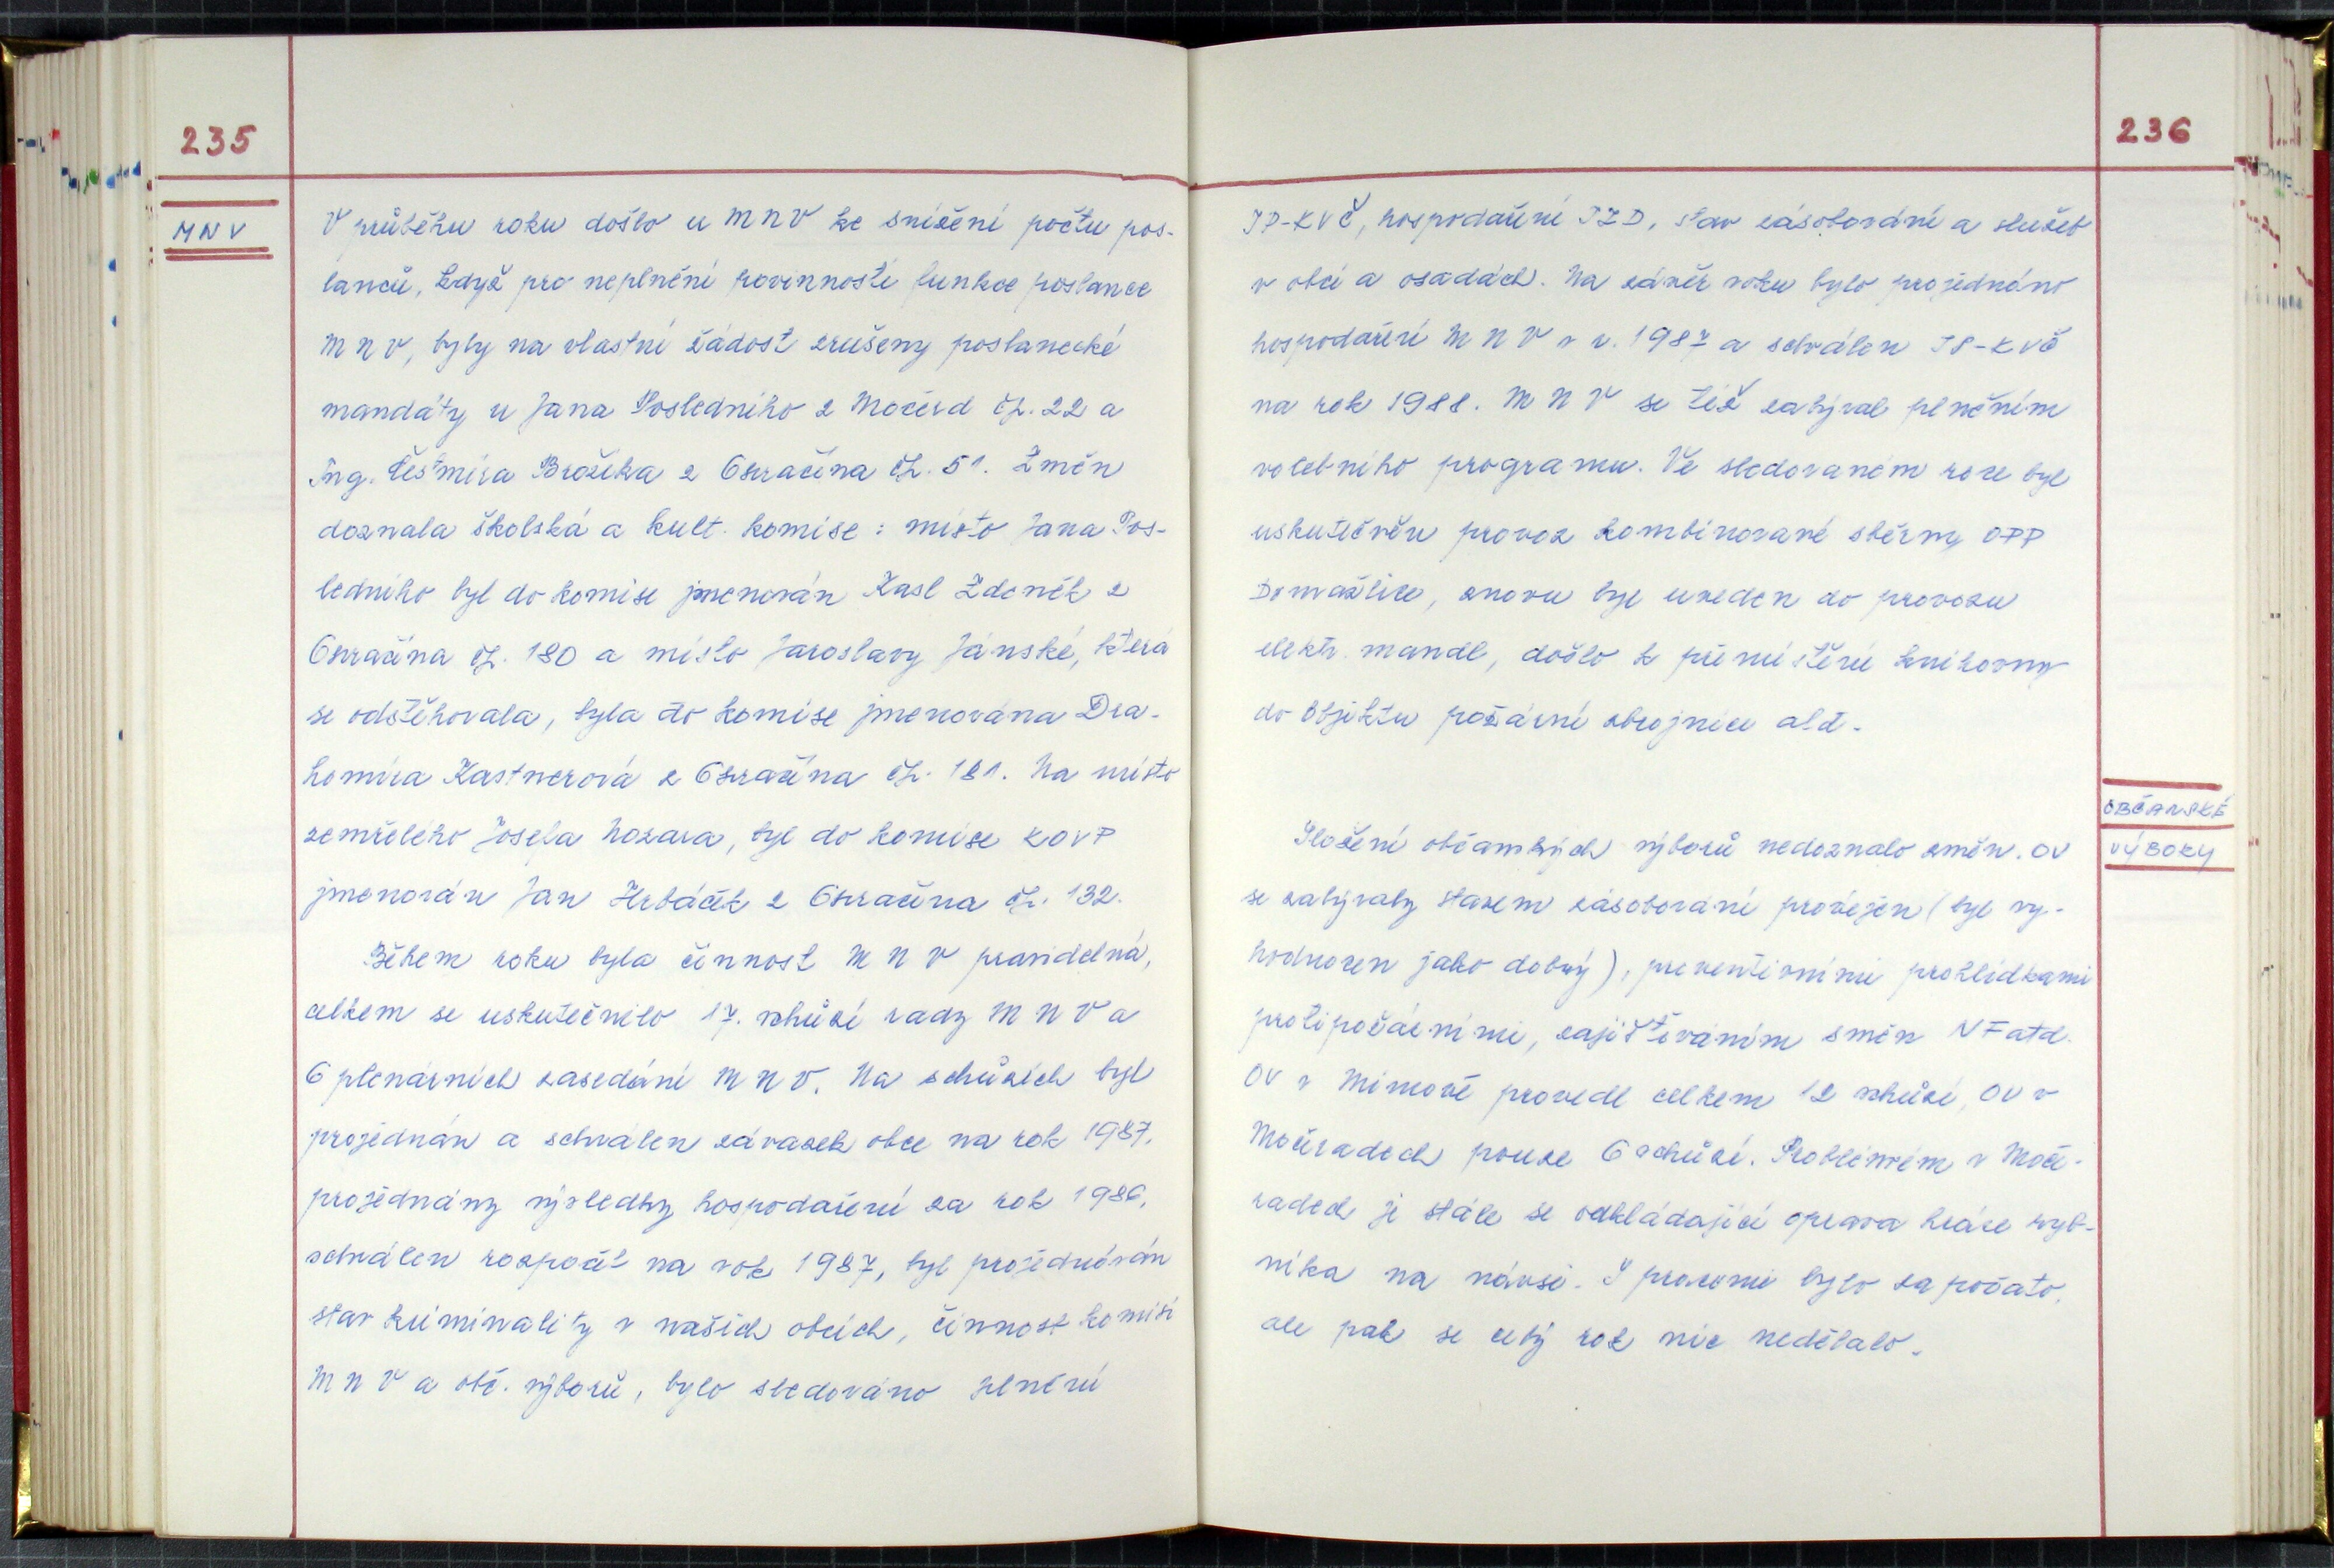 235
MNV
V průběhu roku došlo u MNV ke snížení počtu pos-
lanců, když pro neplnění povinnosti funkce poslance
MNV, byly na vlastní žádost zrušeny poslanecké
mandáty u Jana Posledního z Močerad čp. 22 a
Ing. Čestmíra Brožíka z Osvračína čp. 51. Změn
doznala školská a kult. komise: místo Jana Pos-
ledního byl do komise jmenován Kasl Zdeněk z
Osvračína čp. 180 a místo Jaroslavy Jánské, která
se odstěhovala, byla do komise jmenována Dra-
homíra Kastnerová z Osvračína čp. 181. Na místo
zemřelého Josefa Nozara, byl do komise KOVP
jmenován Jan Hrbáček z Osvračína čp. 132.
Během roku byla činnost MNV pravidelná,
celkem se uskutečnilo 17. schůzí rady MNV a
6 plenárních zasedání MNV. Na schůzích byl
projednán a schválen závazek obce na rok 1987,
projednány výsledky hospodaření za rok 1986,
schválen rozpočet na rok 1987, byl projednáván
stav kriminality v našich obcích, činnost komisí
MNV a obč. výborů, bylo sledováno plnění
236
JP-KVČ, hospodaření JZD, stav zásobování a služeb
v obci a osadách. Na závěr roku bylo projednáno
hospodaření MNV v r. 1987 a schválen JP-KVČ
na rok 1988. MNV se též zabýval plněním
volebního programu. Ve sledovaném roce byl
uskutečněn provoz kombinované sběrny OPP
Domažlice, znovu byl uveden do provozu
elektr. mandl, došlo k přemístění knihovny
do objektu požární zbrojnice atd.
OBČANSKÉ
VÝBORY
Složení občanských výborů nedoznalo změn. OV
se zabývaly stavem zásobování prodejen (byl vy-
hodnocen jako dobrý), preventivními prohlídkami
protipožárními, zajišťováním směn NF atd.
OV v Mimově provedl celkem 12 schůzí, OV v
Močeradech pouze 6 schůzí. Problémem v Moče-
radech je stále se odkládající oprava hráze ryb-
níka na návsi. S pracemi bylo započato,
ale pak se celý rok nic nedělalo.